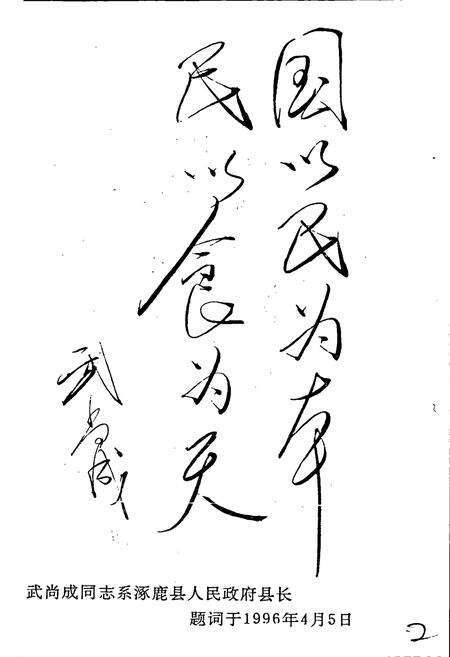 国以民为本
民以食为天
武尚成
武尚成同志系涿鹿县人民政府县长
题词于1996年4月5日
2